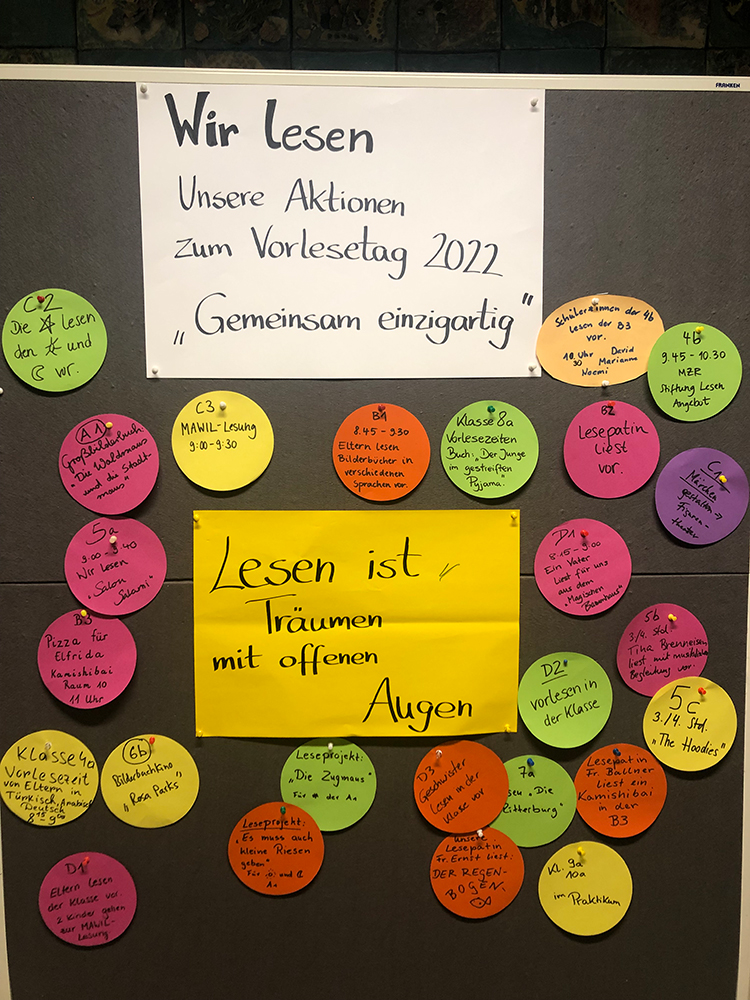 FRANKEN
Wir lesen
Unsere Aktionen
zum Vorlesetag 2022
„Gemeinsam einzigartig"
C2
Die lesen
den und
vor.
Schüler*innen der 4b
lesen der B3
vor.
10 Uhr David
Marianna
Noemi
4b
9.45 - 10.30
MZR
Stiftung Lesen
Angebot
A1
Großbilderbuch:
"Die Waldmaus
und die Stadt-
maus"
C3
MAWIL-Lesung
9:00-9:30
B1
8.45 - 9.30
Eltern lesen
Bilderbücher in
verschiedenen
Sprachen vor.
Klasse 8a
Vorlesezeiten
Buch: „Der Junge
im gestreiften
Pyjama.
B2
Lesepatin
liest
vor.
C1
Märchen
gestalten →
Figuren-
theater
5a
9:00 - 9.40
Wir lesen
„Salon
Salami"
Lesen ist
Träumen
mit offenen
Augen
D1
8.15 - 9.00
Ein Vater
liest für uns
aus dem
„Magischen
Baumhaus"
B3
Pizza für
Elfrida
Kamishibai
Raum 10
11 Uhr
5b
3./4. Std.
Tina Brenneisen
liest mit musikalischer
Begleitung vor.
D2
vorlesen in
der Klasse
5c
3./4. Std.
"The Hoodies"
Klasse 4a
Vorlesezeit
von Eltern in
Türkisch, Arabisch
Deutsch
8¹⁵-9⁰⁰
6b
Bilderbuchkino
„Rosa Parks"
Leseprojekt:
„Die Zugmaus"
Für der A1
D3
Geschwister
lesen in der
Klasse vor
7a
„Die
Ritterburg"
Lesepatin
Fr. Ballner
liest ein
Kamishibai
in der
B3
Leseprojekt:
„Es muss auch
kleine Riesen
geben"
Für und
A1
Unsere
Lesepatin
Fr. Ernst liest:
DER REGEN-
BOGEN.
Kl. 9a
10a
im Praktikum
D1
Eltern lesen
der Klasse vor.
2 Kinder gehen
zur MAWIL-
Lesung